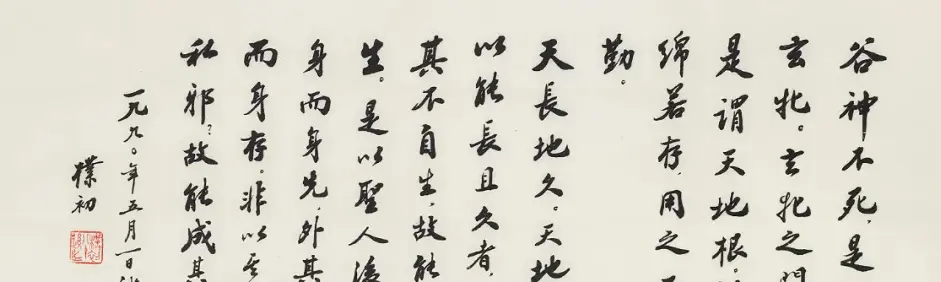 谷神不死,是
玄牝。玄牝之門
是謂天地根。
綿若存,用之
勤。
天長地久。天地
以能長且久者,
其不自生,故能
生。是以聖人後
身而身先,外其
而身存。非以其
私邪?故能成其
一九九〇年五月一日
樸初